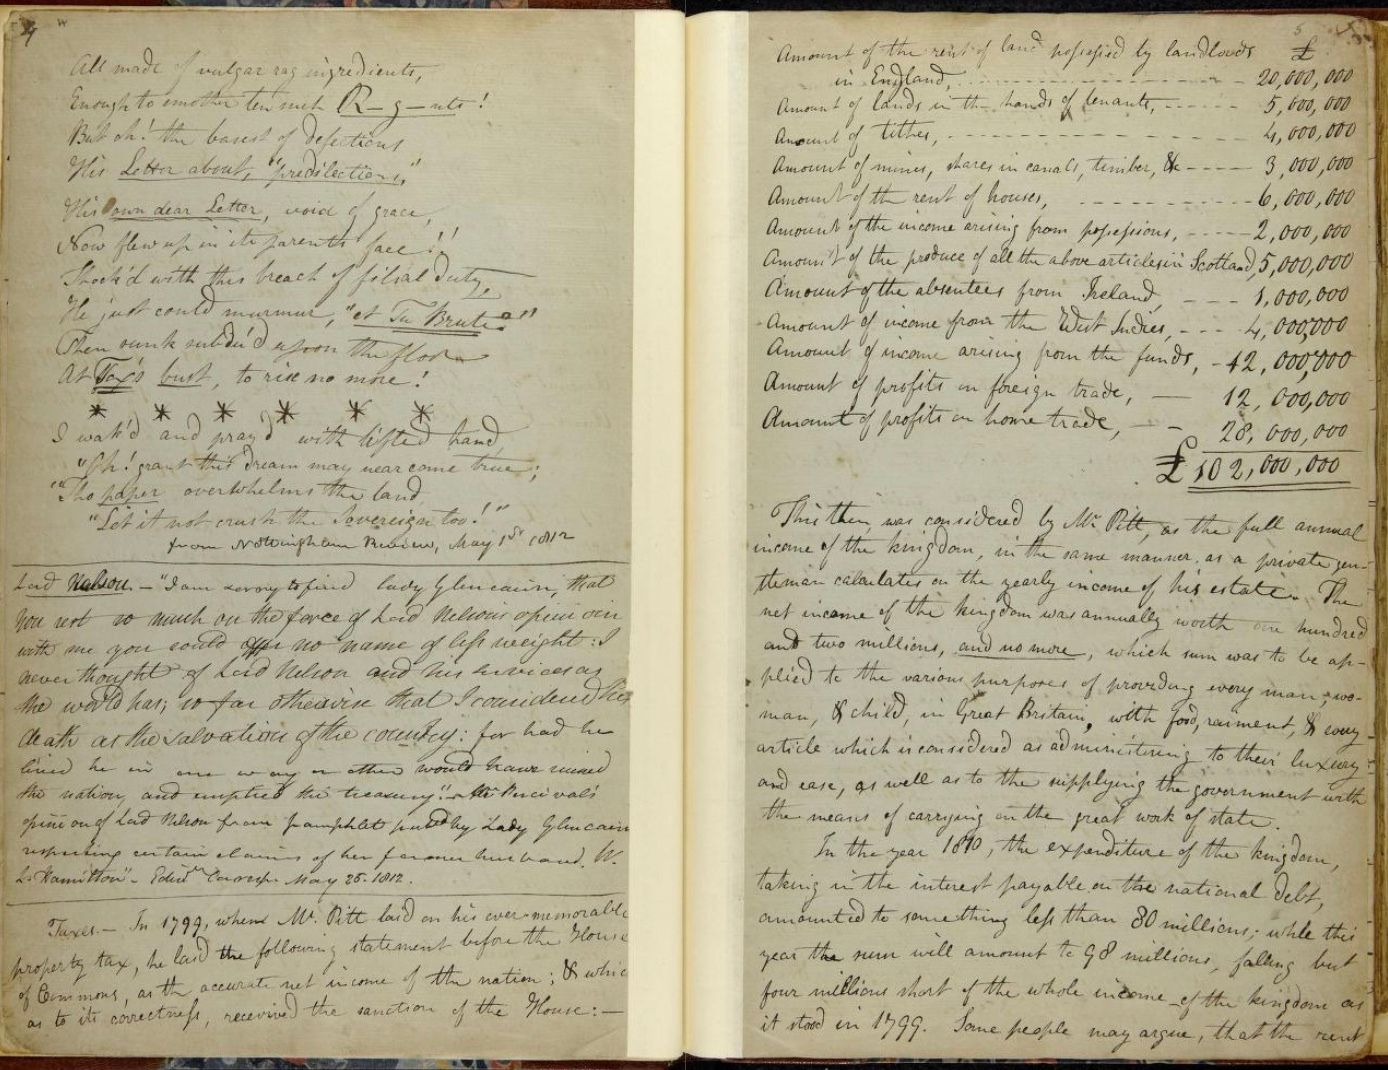 4
All made of vulgar rag ingredients,
Enough to smother ten such R-g-nts!
But oh! the basest of defections
His Letter about, "predilections,"
His own dear Letter, void of grace,
Now flew up in its parents face!!
Shock'd with this breach of filial Duty,
He just could murmur, "et Tu Brute?"
Then sunk subdu'd upon the floor
At Fox's bust, to rise no more!
* * * * * *
I wak'd and pray'd with lifted hand
"Oh! grant this Dream may near come true;
"Tho paper overwhelms the land
"Let it not crush the Sovereign too!"
from Nottingham Review, May 1st 1812
Lord Nelson. - "I am sorry to find Lady Glencairn, that
you rest so much on the force of Lord Nelsons opinion
with me you could offer no name of less weight: I
never thought of Lord Nelson and his services as
the world has; so far otherwise that I considered his
death as the salvation of the country: for had he
lived he in one way or other would have ruined
the nation, and emptied the treasury". Mr. Percival's
opinion of Lord Nelson from pamphlet pubd by Lady Glencairn
respecting certain claims of her former husband. W.
Hamilton". May 25. 1812.
Taxes. - In 1799, when Mr. Pitt laid on his ever-memorable
property tax, he laid the following statement before the House
of Commons, as the accurate net income of the nation; & which
as to its correctness, received the sanction of the House: -
5
Amount of the rent of land possessed by landlords £
in England, 20,000,000
Amount of lands in the hands of tenants, 5,000,000
Amount of tithes, 4,000,000
Amount of mines, shares in canals, timber, &c 3,000,000
Amount of the rent of houses, 6,000,000
Amount of the income arising from possessions, 2,000,000
Amount of the produce of all the above articles in Scotland, 5,000,000
Amount of the absentees from Ireland, 1,000,000
Amount of income from the West Indies, 4,000,000
Amount of income arising from the funds, 12,000,000
Amount of profits on foreign trade, 12,000,000
Amount of profits on home trade, 28,000,000
£ 102,000,000
This then, was considered by Mr. Pitt, as the full annual
income of the kingdom, in the same manner, as a private gen-
tleman calculates on the yearly income of his estate. The
net income of the kingdom was annually worth one hundred
and two millions, and no more, which sum was to be ap-
plied to the various purposes of providing every man, wo-
man, & child, in Great Britain, with food, raiment, & every
article which is considered as administering to their luxury
and ease, as well as to the supplying the government with
the means of carrying on the great work of state.
In the year 1810, the expenditure of the kingdom,
taking in the interest payable on the national debt,
amounted to something less than 80 millions; while this
year the sum will amount to 98 millions, falling but
four millions short of the whole income of the kingdom as
it stood in 1799. Some people may argue, that the rent